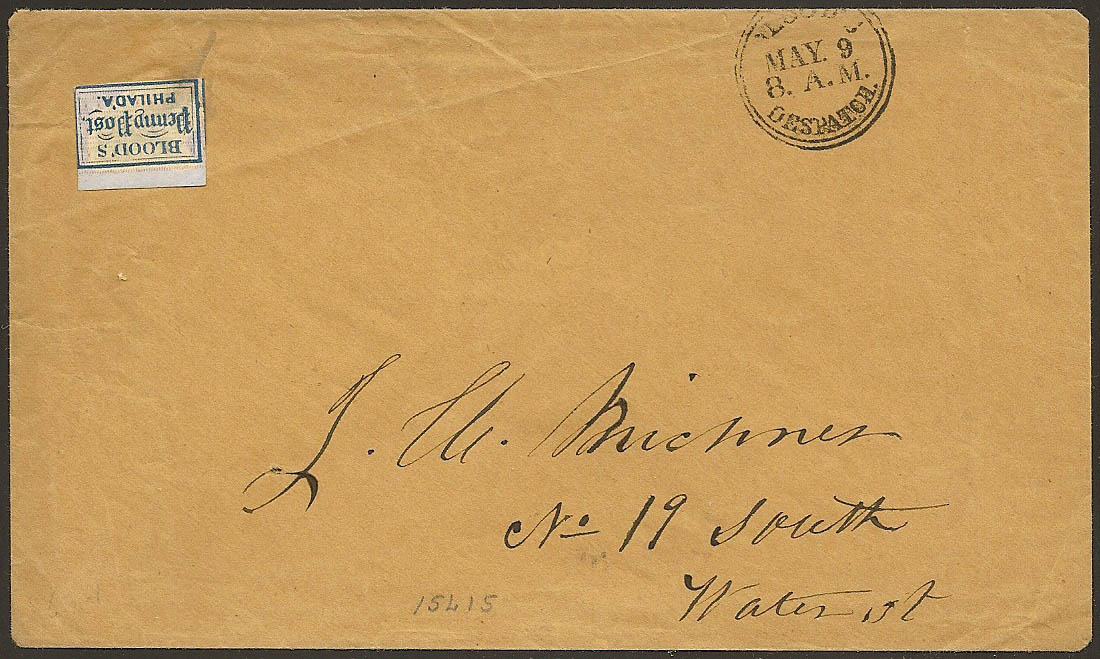 BLOOD'S
Penny Post,
PHILAD'A.
BLOOD'S
MAY. 9
8. A.M.
DESPATCH.
J. W. Michner
No 19 South
Water st
15L15